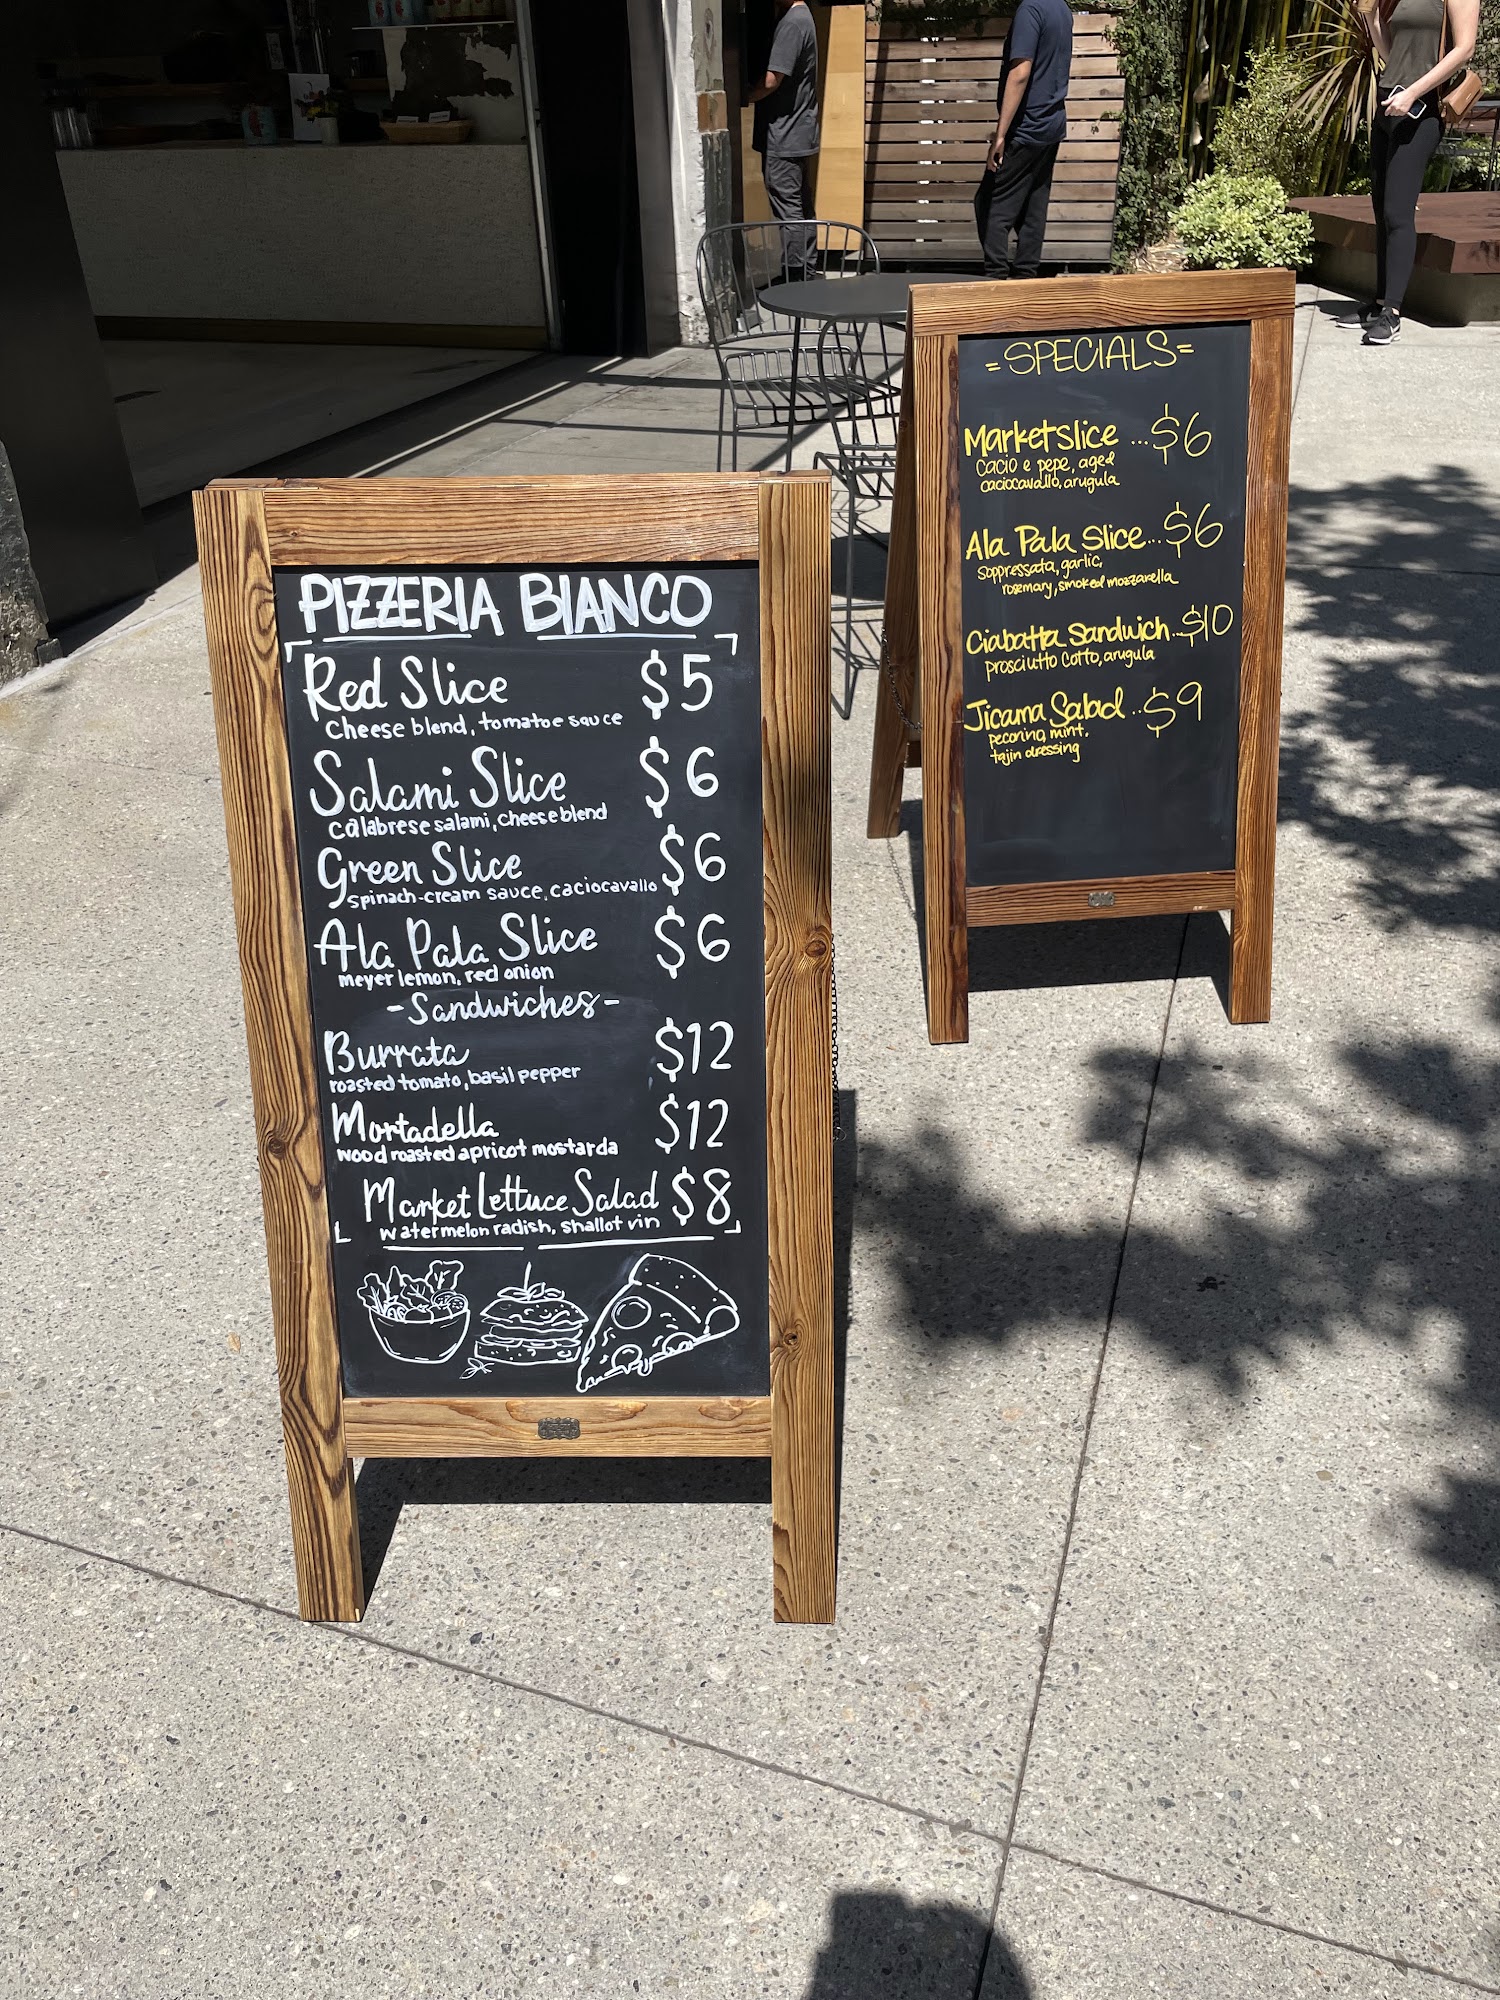 PIZZERIA BIANCO
Red Slice $5
Cheese blend, tomatoe sauce
Salami Slice $6
calabrese salami, cheese blend
Green Slice $6
spinach-cream sauce, caciocavallo
Ala Pala Slice $6
meyer lemon, red onion
-Sandwiches-
Burrata $12
roasted tomato, basil pepper
Mortadella $12
wood roasted apricot mostarda
Market Lettuce Salad $8
watermelon radish, shallot vin
=SPECIALS=
Market slice ...$6
cacio e pepe, aged
caciocavallo, arugula
Ala Pala Slice...$6
Soppressata, garlic,
rosemary, smoked mozzarella
Ciabatta Sandwich..$10
prosciutto cotto, arugula
Jicama Salad ..$9
pecorino, mint,
tajin dressing